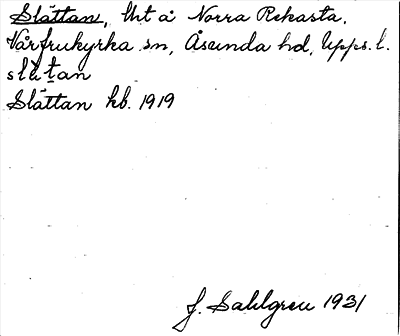 Slättan, lht å Norra Rekasta,
Vårfrukyrka sn, Åsunda hd, Upps. l.
slätan
Slättan kb. 1919
J. Sahlgren 1931